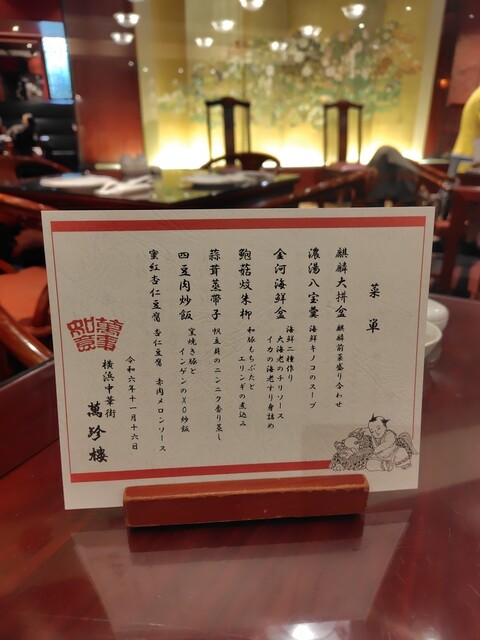 菜單
麒麟大拼盒 麒麟前菜盛り合わせ
濃湯八宝羹 海鮮キノコのスープ
金河海鮮盒 海鮮二種作り
大海老のチリソース
イカの海老すり身詰め
鮑菇炆朱柳 和豚もちぶたと
エリンギの煮込み
蒜茸蒸帶子 帆立貝のニンニク香り蒸し
四豆肉炒飯 窯焼き豚と
インゲンのXO炒飯
蜜紅杏仁豆腐 杏仁豆腐 赤肉メロンソース
令和六年十一月十六日
横浜中華街
萬珍樓
萬事如意